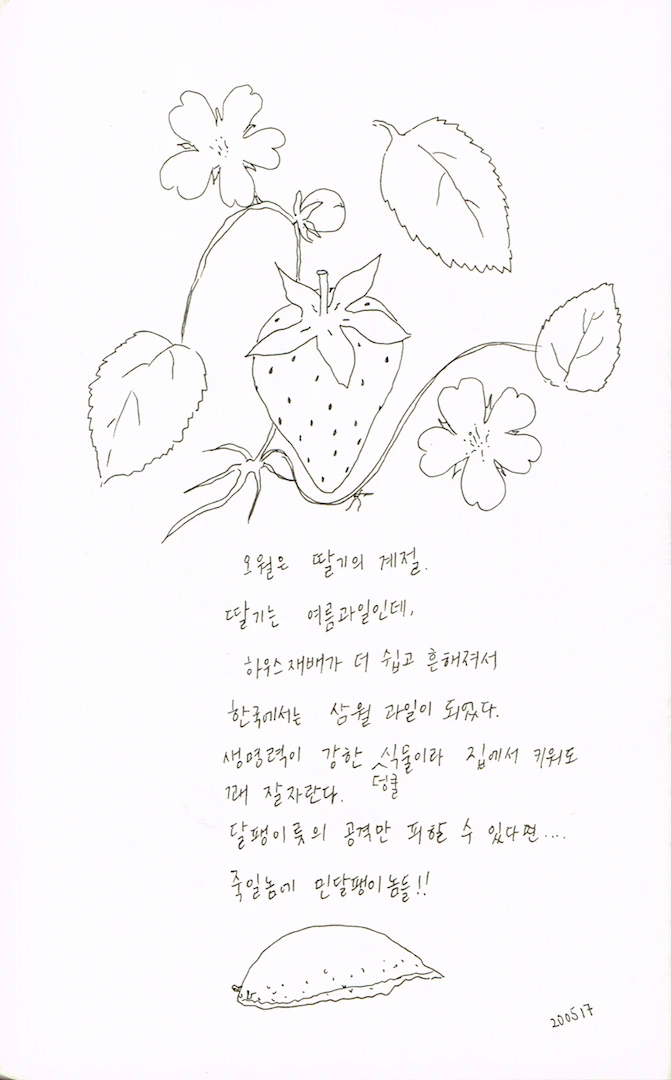 오월은 딸기의 계절.
딸기는 여름과일인데,
하우스재배가 더 쉽고 흔해져서
한국에서는 삼월 과일이 되었다.
생명력이 강한 덩쿨식물이라 집에서 키워도
꽤 잘자란다.
달팽이룻의 공격만 피할 수 있다면....
죽일놈에 민달팽이놈들!!
200517